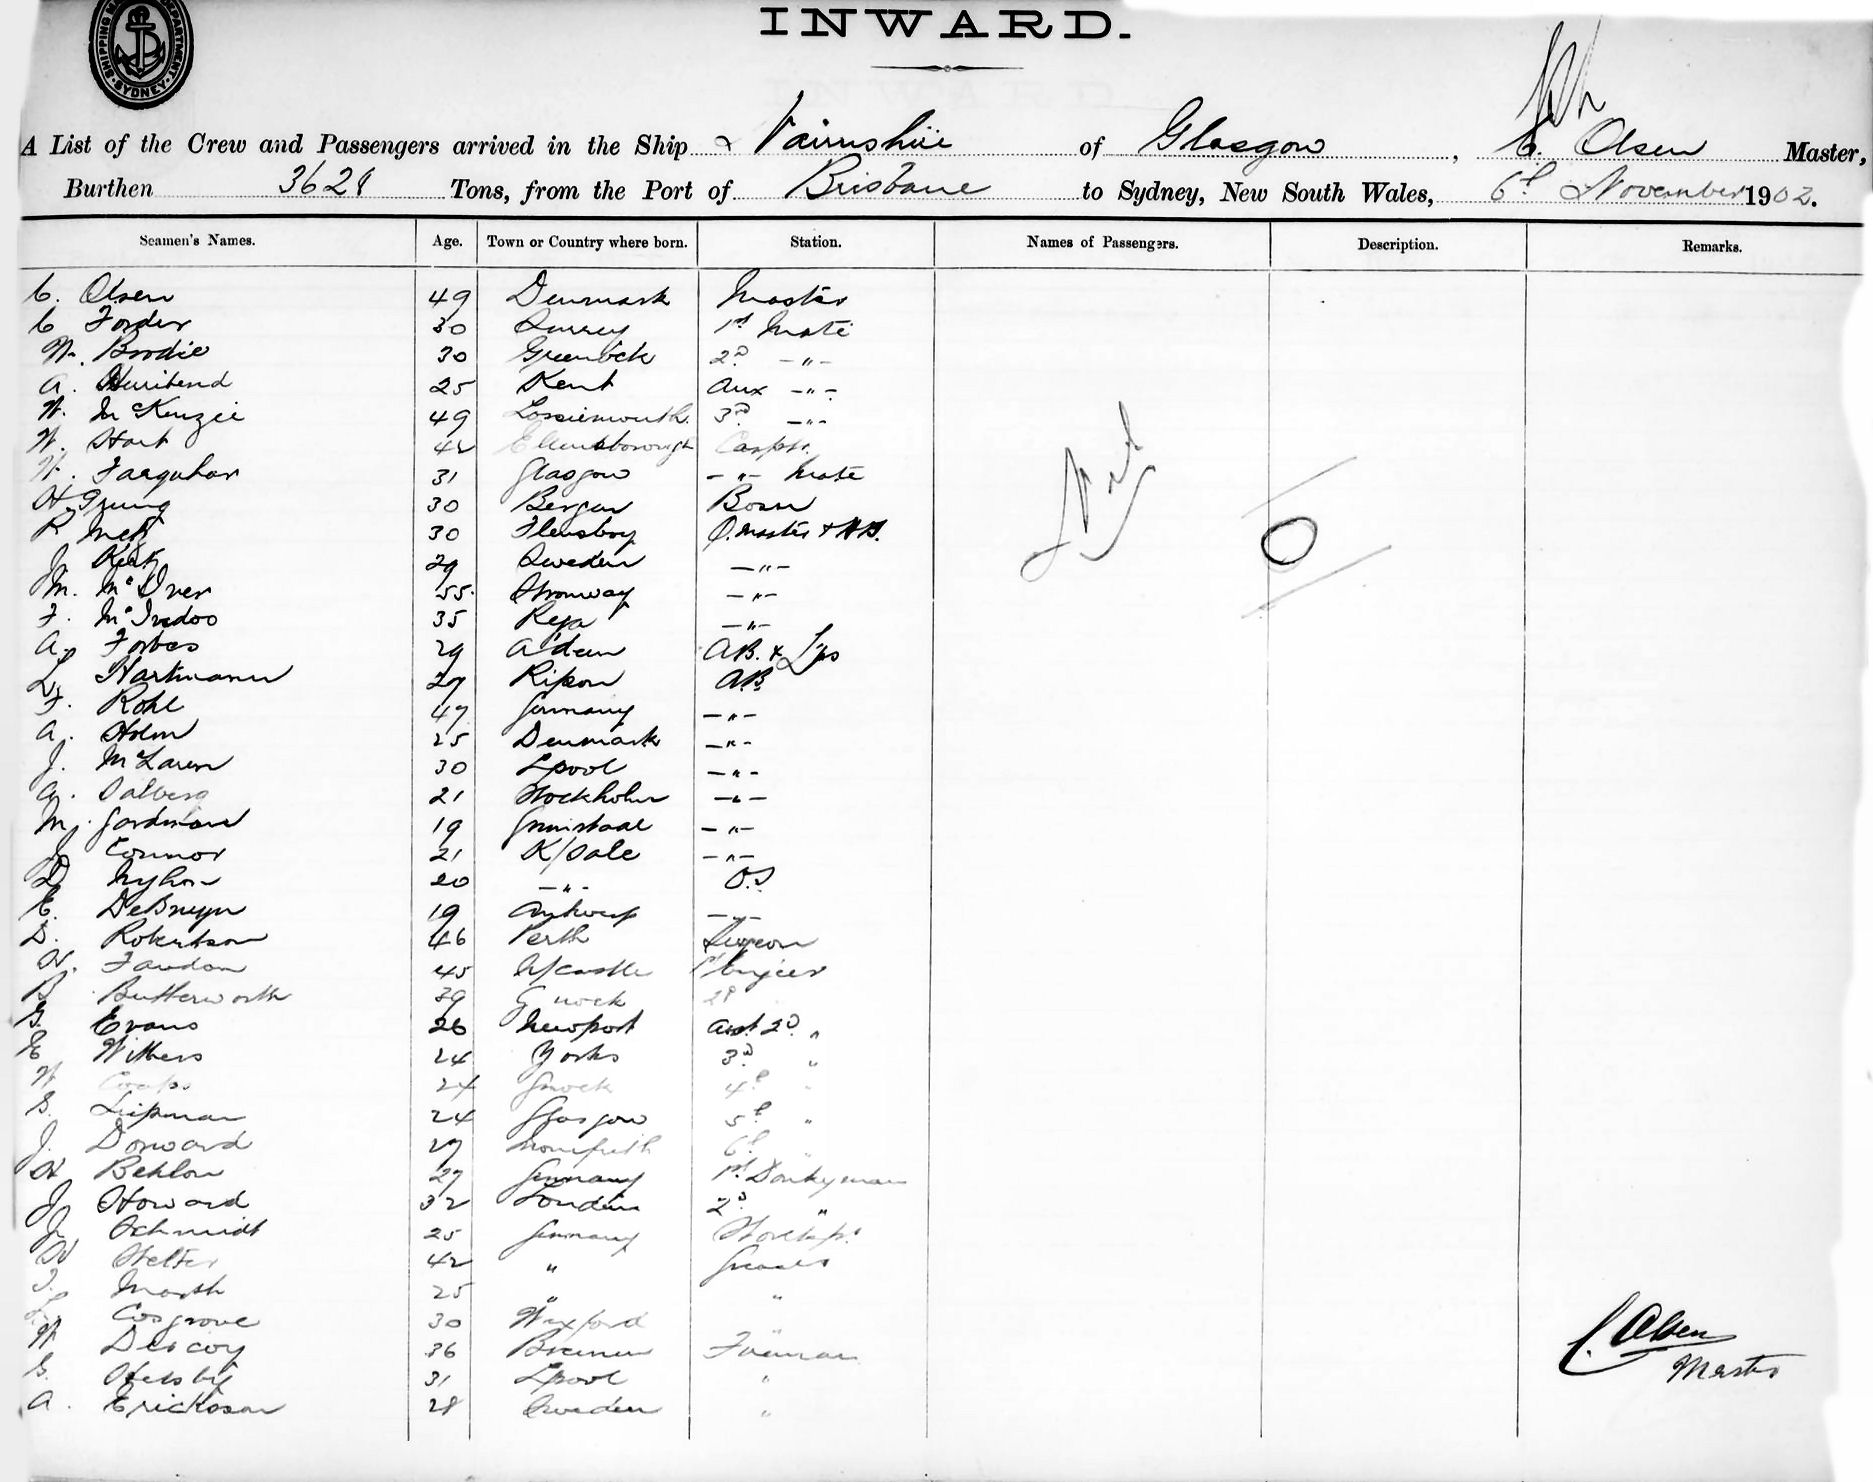 SHIPPING MASTER'S DEPARTMENT SYDNEY
INWARD.
A List of the Crew and Passengers arrived in the Ship Nairnshire of Glasgow, C. Olsen Master,
Burthen 3628 Tons, from the Port of Brisbane to Sydney, New South Wales, 6th November 1902.
Seamen's Names. Age. Town or Country where born. Station. Names of Passengers. Description. Remarks.
C. Olsen 49 Denmark Master
C Forder 30 Surrey 1st Mate
W. Brodie 30 Greenock 2D -"-
A. 25 Kent Aux -"-
W. McKenzie 49 Lossiemouth 3D -"-
W. Hart 42 Carptr.
W. Farquhar 31 Glasgow -"- Mate
H. Grung 30 Bergen Bosn
R 30 Flensborg Q. Master & AB.
J. 29 Sweden -"-
M. McIver 55 Stornway -"-
F. McIndoo 35 -"-
A. Forbes 29 A'deen AB. & Lps
L. Hartmann 27 Ripon AB
F. Rohl 47 Germany -"-
A. Holm 25 Denmark -"-
J. McLaren 30 Lpool -"-
A. Salberg 21 Stockholm -"-
M. 19 -"-
J Connor 21 K/Dale -"-
D Nyhon 20 -"- O.S
E. DeBruyn 19 Antwerp -"-
D. Robertson 46 Perth Surgeon
H. Fawdon 45 N/castle 1st Engieer
B Butterworth 39 G'nock 2D
G. Evans 26 Newport Asst 2D "
E Withers 24 Yorks 3D "
W 24 Gnock 4th "
G. Lipman 24 Glasgow 5th "
J. Dorward 27 Monifieth 6th "
H Behlow 27 Germany 1st Donkyman
J. Howard 32 London 2D "
J. Schmidt 25 Germany
H Welter 42 " Greaser
J. Marsh 25 " "
L. Cosgrove 30 Wexford "
W 36 Bremen Fireman
G. Helsby 31 Lpool "
A. Erickson 28 Sweden "
Nil
0
C. Olsen
Master